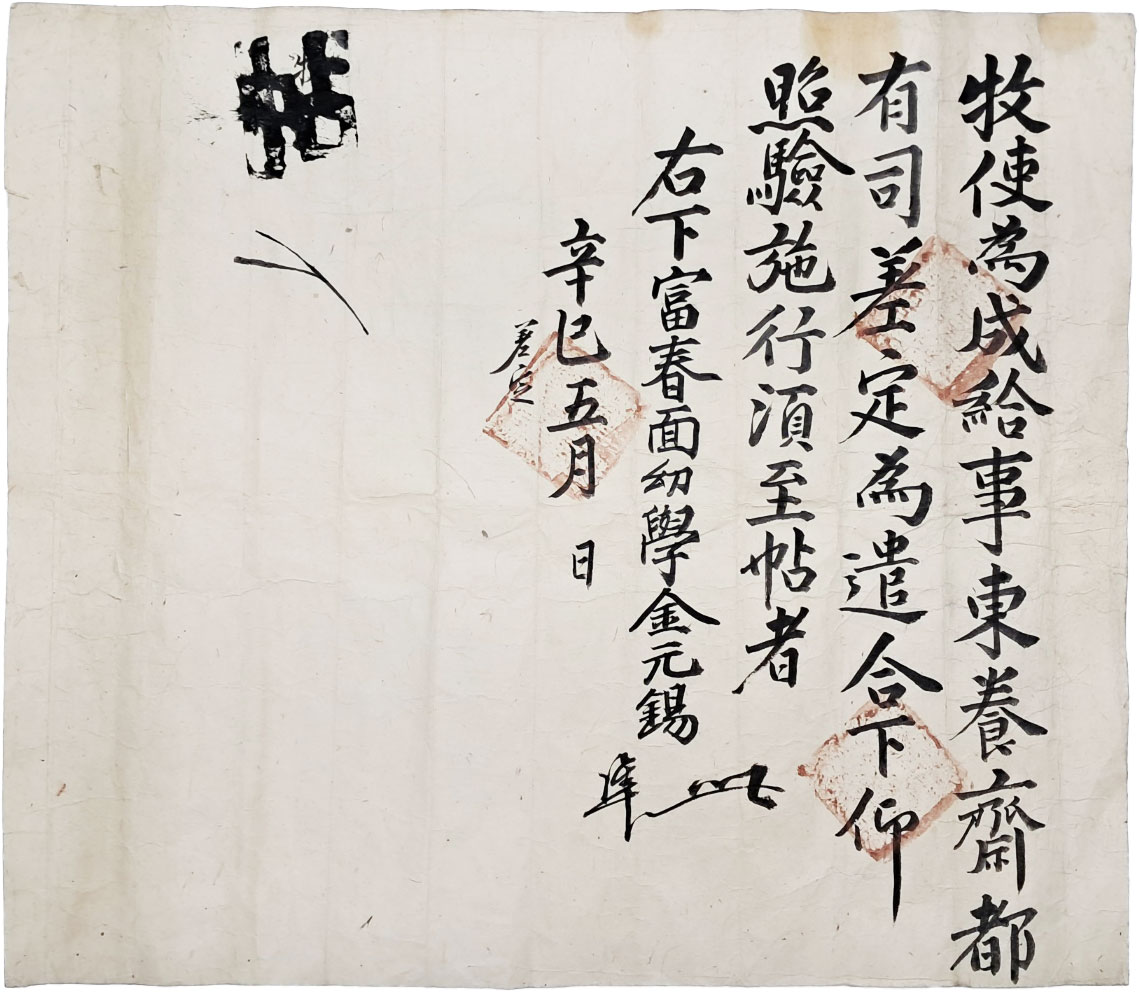 牧使為成給事東養齋都
有司差定為遣合下仰
照驗施行須至帖者
右下富春面幼學金元錫
準此
辛巳五月 日
差定